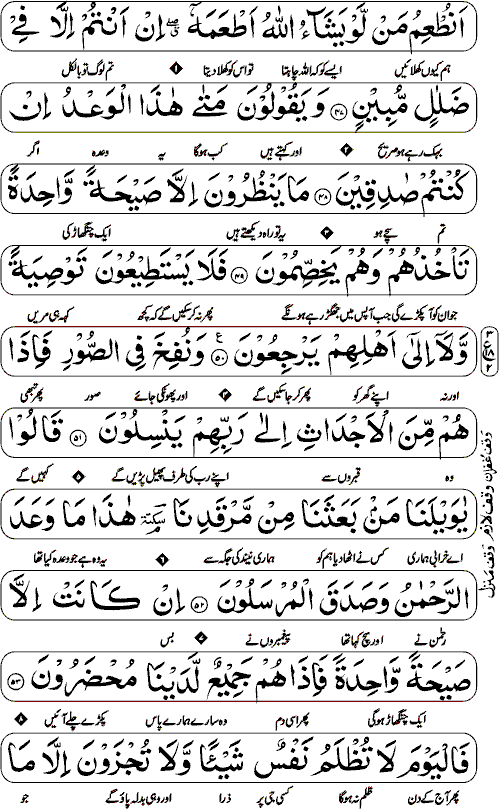 اَنُطۡعِمُ مَنۡ لَّوۡ یَشَآءُ اللّٰہُ اَطۡعَمَہٗۤ ٭ۖ اِنۡ اَنۡتُمۡ اِلَّا فِیۡ
ہم کیوں کھلائیں ایسے کو کہ اللہ چاہتا تو اس کو کھلا دیتا ۱ تم لوگ تو بالکل
ضَلٰلٍ مُّبِیۡنٍ ﴿۴۷﴾ وَ یَقُوۡلُوۡنَ مَتٰی ہٰذَا الۡوَعۡدُ اِنۡ
بہک رہے ہو صریح ۲ اور کہتے ہیں کب ہوگا یہ وعدہ اگر
کُنۡتُمۡ صٰدِقِیۡنَ ﴿۴۸﴾ مَا یَنۡظُرُوۡنَ اِلَّا صَیۡحَۃً وَّاحِدَۃً
تم سچے ہو ۳ یہ تو راہ دیکھتے ہیں ایک چنگھاڑ کی
تَاۡخُذُہُمۡ وَ ہُمۡ یَخِصِّمُوۡنَ ﴿۴۹﴾ فَلَا یَسۡتَطِیۡعُوۡنَ تَوۡصِیَۃً
جو ان کو آ پکڑے گی جب آپس میں جھگڑ رہے ہونگے پھر نہ کر سکیں گے کہ کچھ کہہ ہی مریں
وَّ لَاۤ اِلٰۤی اَہۡلِہِمۡ یَرۡجِعُوۡنَ ﴿۵۰﴾ ع وَ نُفِخَ فِی الصُّوۡرِ فَاِذَا
اور نہ اپنے گھر کو پھر کر جا سکیں گے ۴ اور پھونکی جائے صور پھر تبھی
ہُمۡ مِّنَ الۡاَجۡدَاثِ اِلٰی رَبِّہِمۡ یَنۡسِلُوۡنَ ﴿۵۱﴾ قَالُوۡا
وہ قبروں سے اپنے رب کی طرف پھیل پڑیں گے ۵ کہیں گے
یٰوَیۡلَنَا مَنۡۢ بَعَثَنَا مِنۡ مَّرۡقَدِنَا سکتۃ ہٰذَا مَا وَعَدَ
اے خرابی ہماری کس نے اٹھا دیا ہم کو ہماری نیند کی جگہ سے ۶ یہ وہ ہے جو وعدہ کیا تھا
الرَّحۡمٰنُ وَ صَدَقَ الۡمُرۡسَلُوۡنَ ﴿۵۲﴾ اِنۡ کَانَتۡ اِلَّا
رحمٰن نے اور سچ کہا تھا پیغمبروں نے ۷ بس
صَیۡحَۃً وَّاحِدَۃً فَاِذَا ہُمۡ جَمِیۡعٌ لَّدَیۡنَا مُحۡضَرُوۡنَ ﴿۵۳﴾
ایک چنگھاڑ ہوگی پھر اسی دم وہ سارے ہمارے پاس پکڑے چلے آئیں ۸
فَالۡیَوۡمَ لَا تُظۡلَمُ نَفۡسٌ شَیۡئًا وَّ لَا تُجۡزَوۡنَ اِلَّا مَا
پھر آج کے دن ظلم نہ ہوگا کسی جی پر ذرا اور وہی بدلہ پاؤ گے جو
وقف غفران وقف لازم وقف منزل